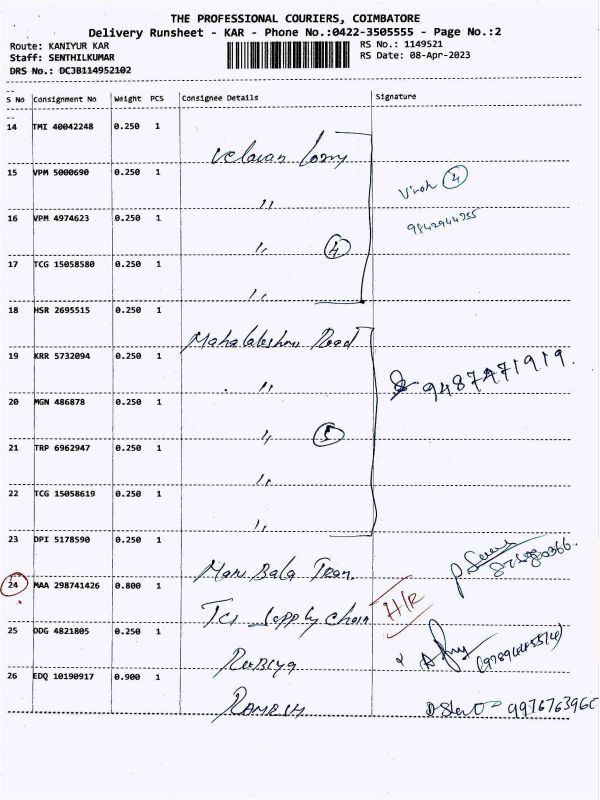 THE PROFESSIONAL COURIERS, COIMBATORE
Delivery Runsheet - KAR - Phone No.:0422-3505555 - Page No.:2
Route: KANIYUR KAR
RS No.: 1149521
Staff: SENTHILKUMAR
RS Date: 08-Apr-2023
DRS No.: DCJB114952102
S No Consignment No Weight PCS Consignee Details Signature
14 TMI 40042248 0.250 1
Velavan Lorry
15 VPM 5000690 0.250 1
〃
4
16 VPM 4974623 0.250 1
9842944355
〃 4
17 TCG 15058580 0.250 1
〃
18 HSR 2695515 0.250 1
Road
19 KRR 5732094 0.250 1
〃
9487471919.
20 MGN 486878 0.250 1
〃 5
21 TRP 6962947 0.250 1
〃
22 TCG 15058619 0.250 1
〃
23 DPI 5178590 0.250 1
Mari Bala Tran.
24 MAA 298741426 0.800 1
H/R
Tcs Supply Chain
25 DDG 4821805 0.250 1
Rubiya
26 EDQ 10190917 0.900 1
Ramesh